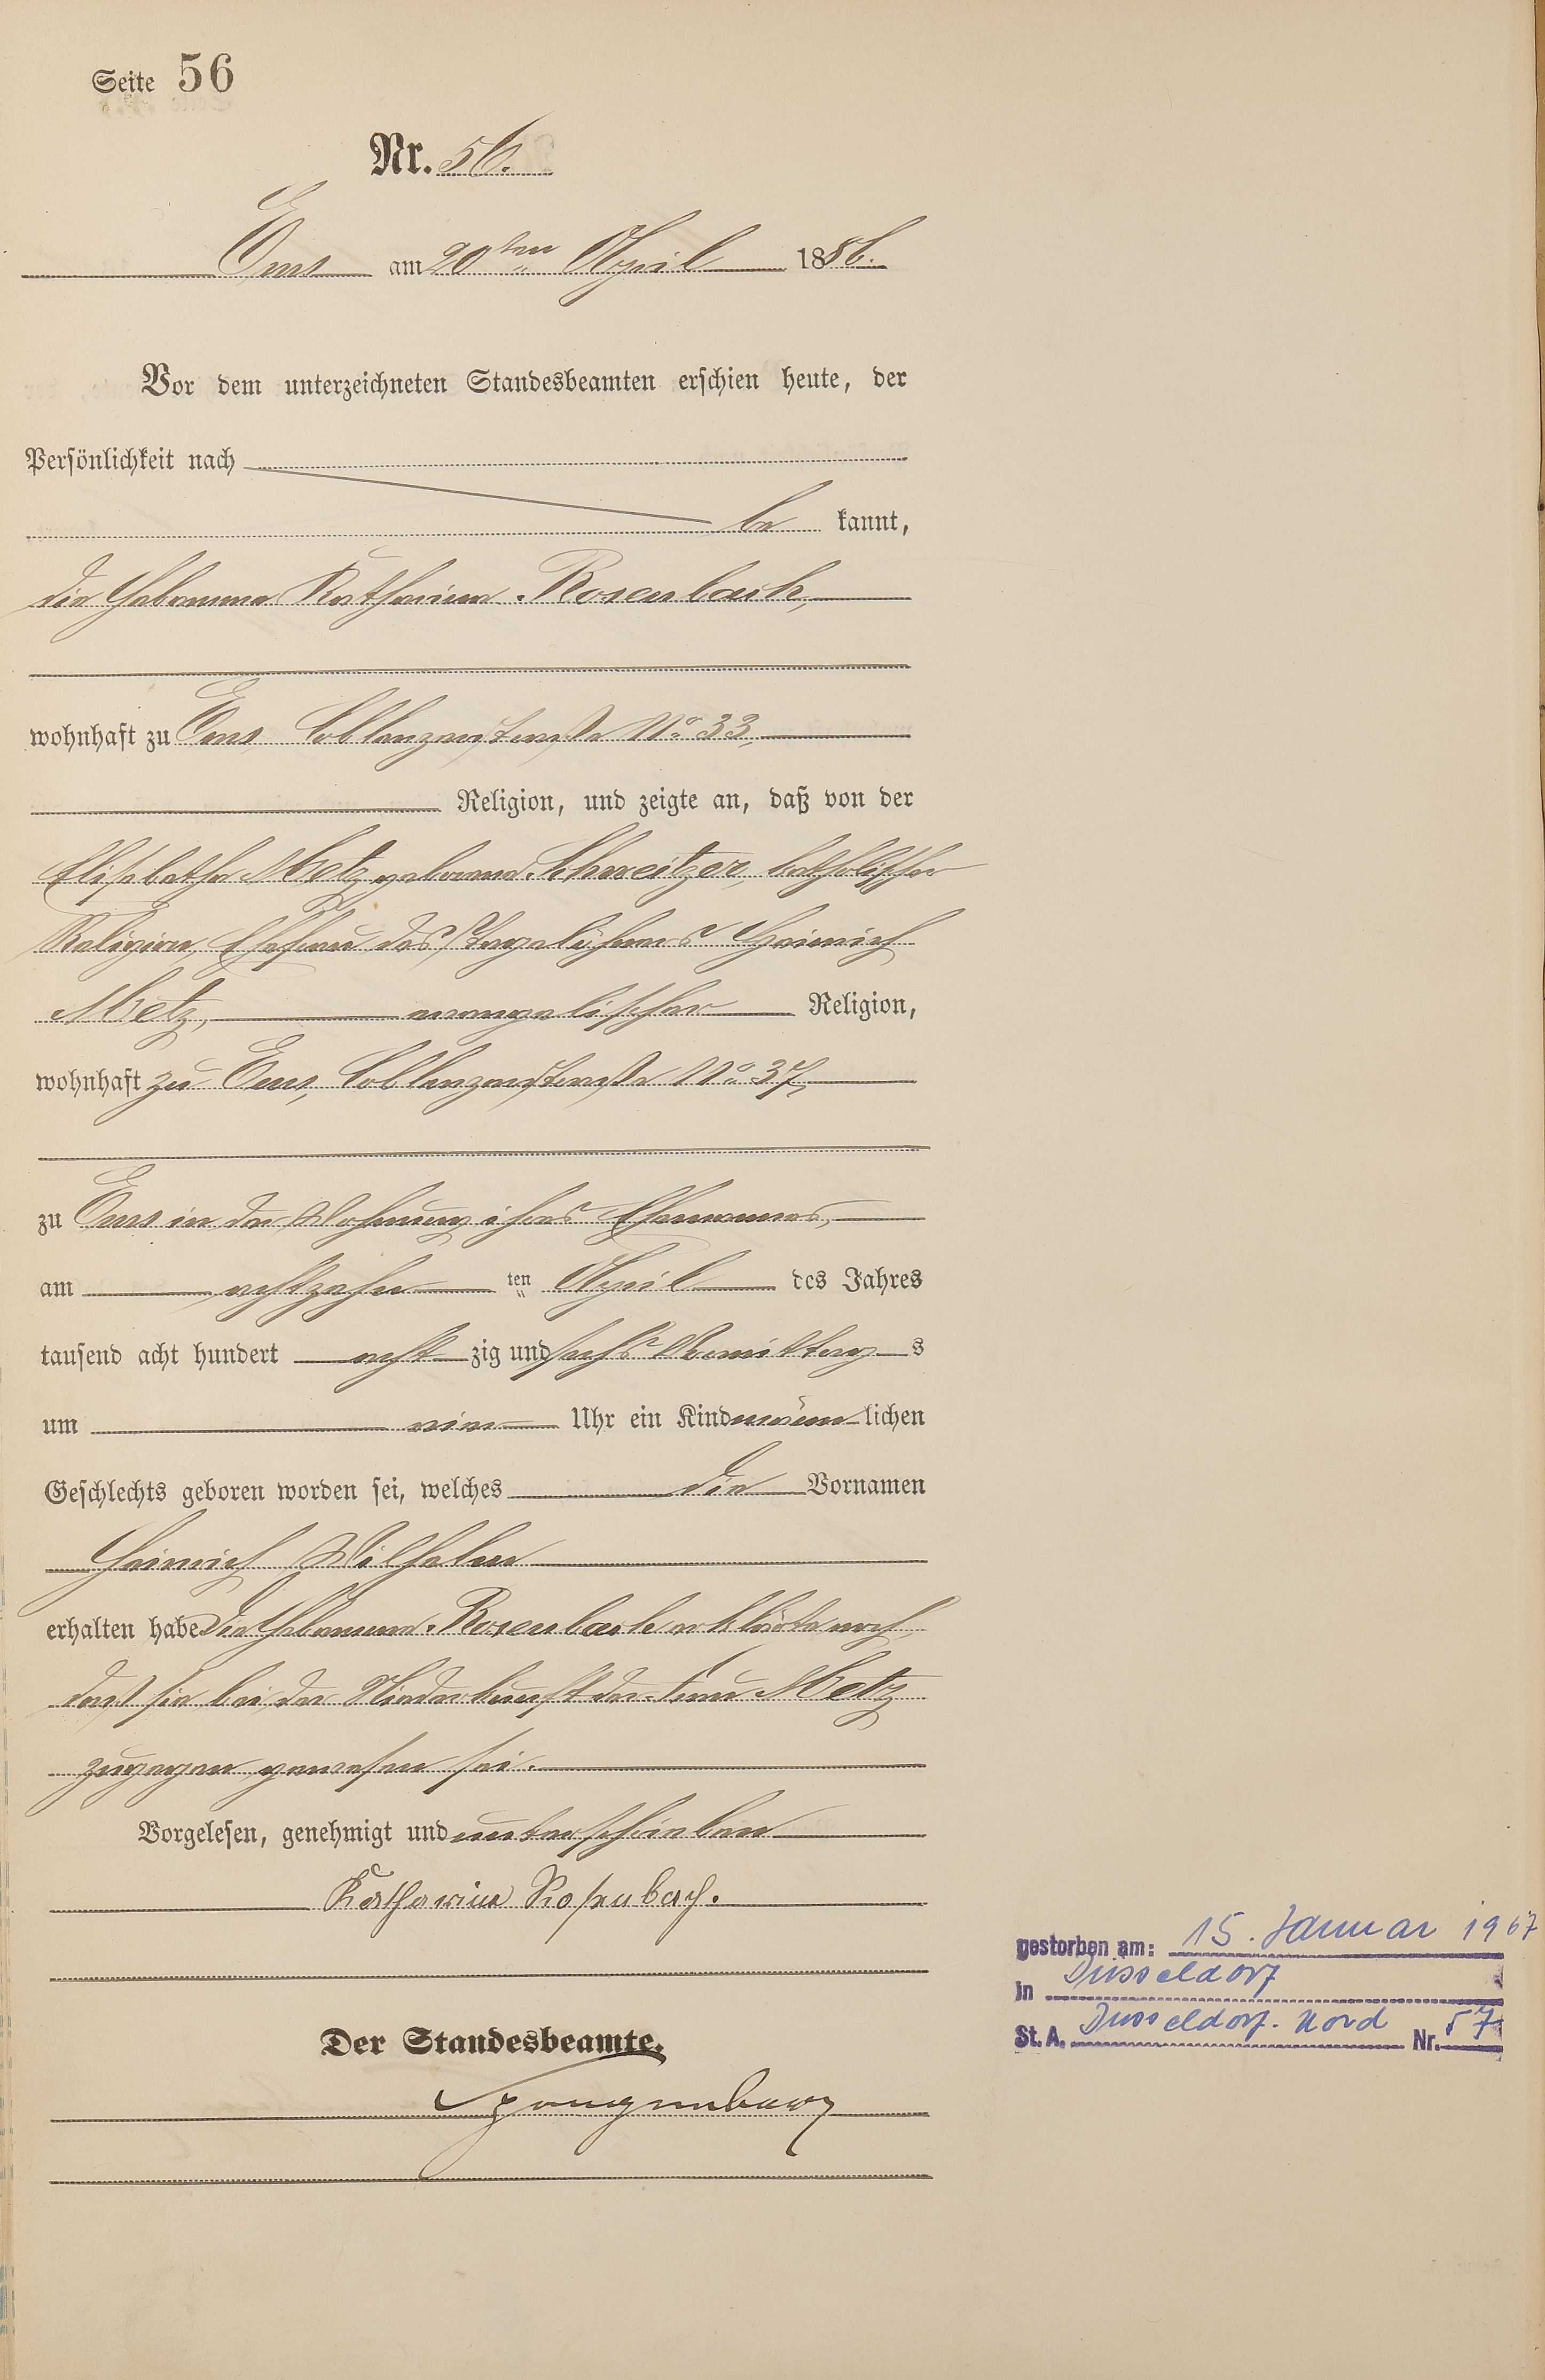 Seite 56
Nr. 56.
Ems am 20ten April 1886.
Vor dem unterzeichneten Standesbeamten erschien heute, der
Persönlichkeit nach
be kannt,
die Hebamme Katharina Rosenbach,
wohnhaft zu Ems Coblenzerstraße No. 33,
Religion, und zeigte an, daß von der
Elisabetha Metz geborene Schweitzer, katholischer
Religion, Ehefrau des Tagelöhners Heinrich
Metz, evangelischer Religion,
wohnhaft zu Ems, Coblenzerstraße No. 37,
zu Ems in der Wohnung ihres Ehemannes,
am achtzehnten April des Jahres
tausend acht hundert acht zig und sechs Vormittags
um vier Uhr ein Kind männlichen
Geschlechts geboren worden sei, welches die Vornamen
Heinrich Wilhelm
erhalten habe Die Hebamme Rosenbach erklärte noch,
daß sie bei der Niederkunft der Frau Metz
zugegen gewesen sei.
Vorgelesen, genehmigt und unterschrieben
Katharina Rosenbach.
Der Standesbeamte.
Spangenberg
gestorben am: 15. Januar 1967
in Düsseldorf
St. A. Düsseldorf-Nord Nr. 57